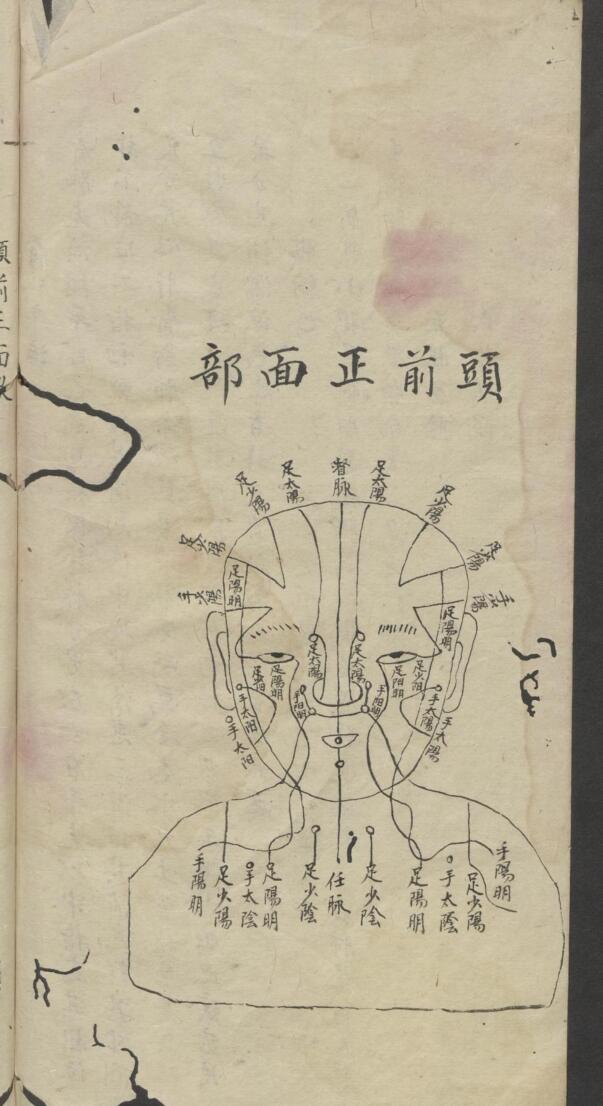 頭前正面部
頭前正面
足少陽
足少陽
足太陽
督脈
足太陽
足少陽
足少陽
手少陽
手少陽
足陽明
足陽明
足太陽
足太陽
足陽明
手陽明
手陽明
足陽明
足少陽
手太陽
手太陽
手太陽
手太陽
手陽明
足少陽
手太陰
足陽明
足少陰
任脈
足少陰
足陽明
手太陰
足少陽
手陽明